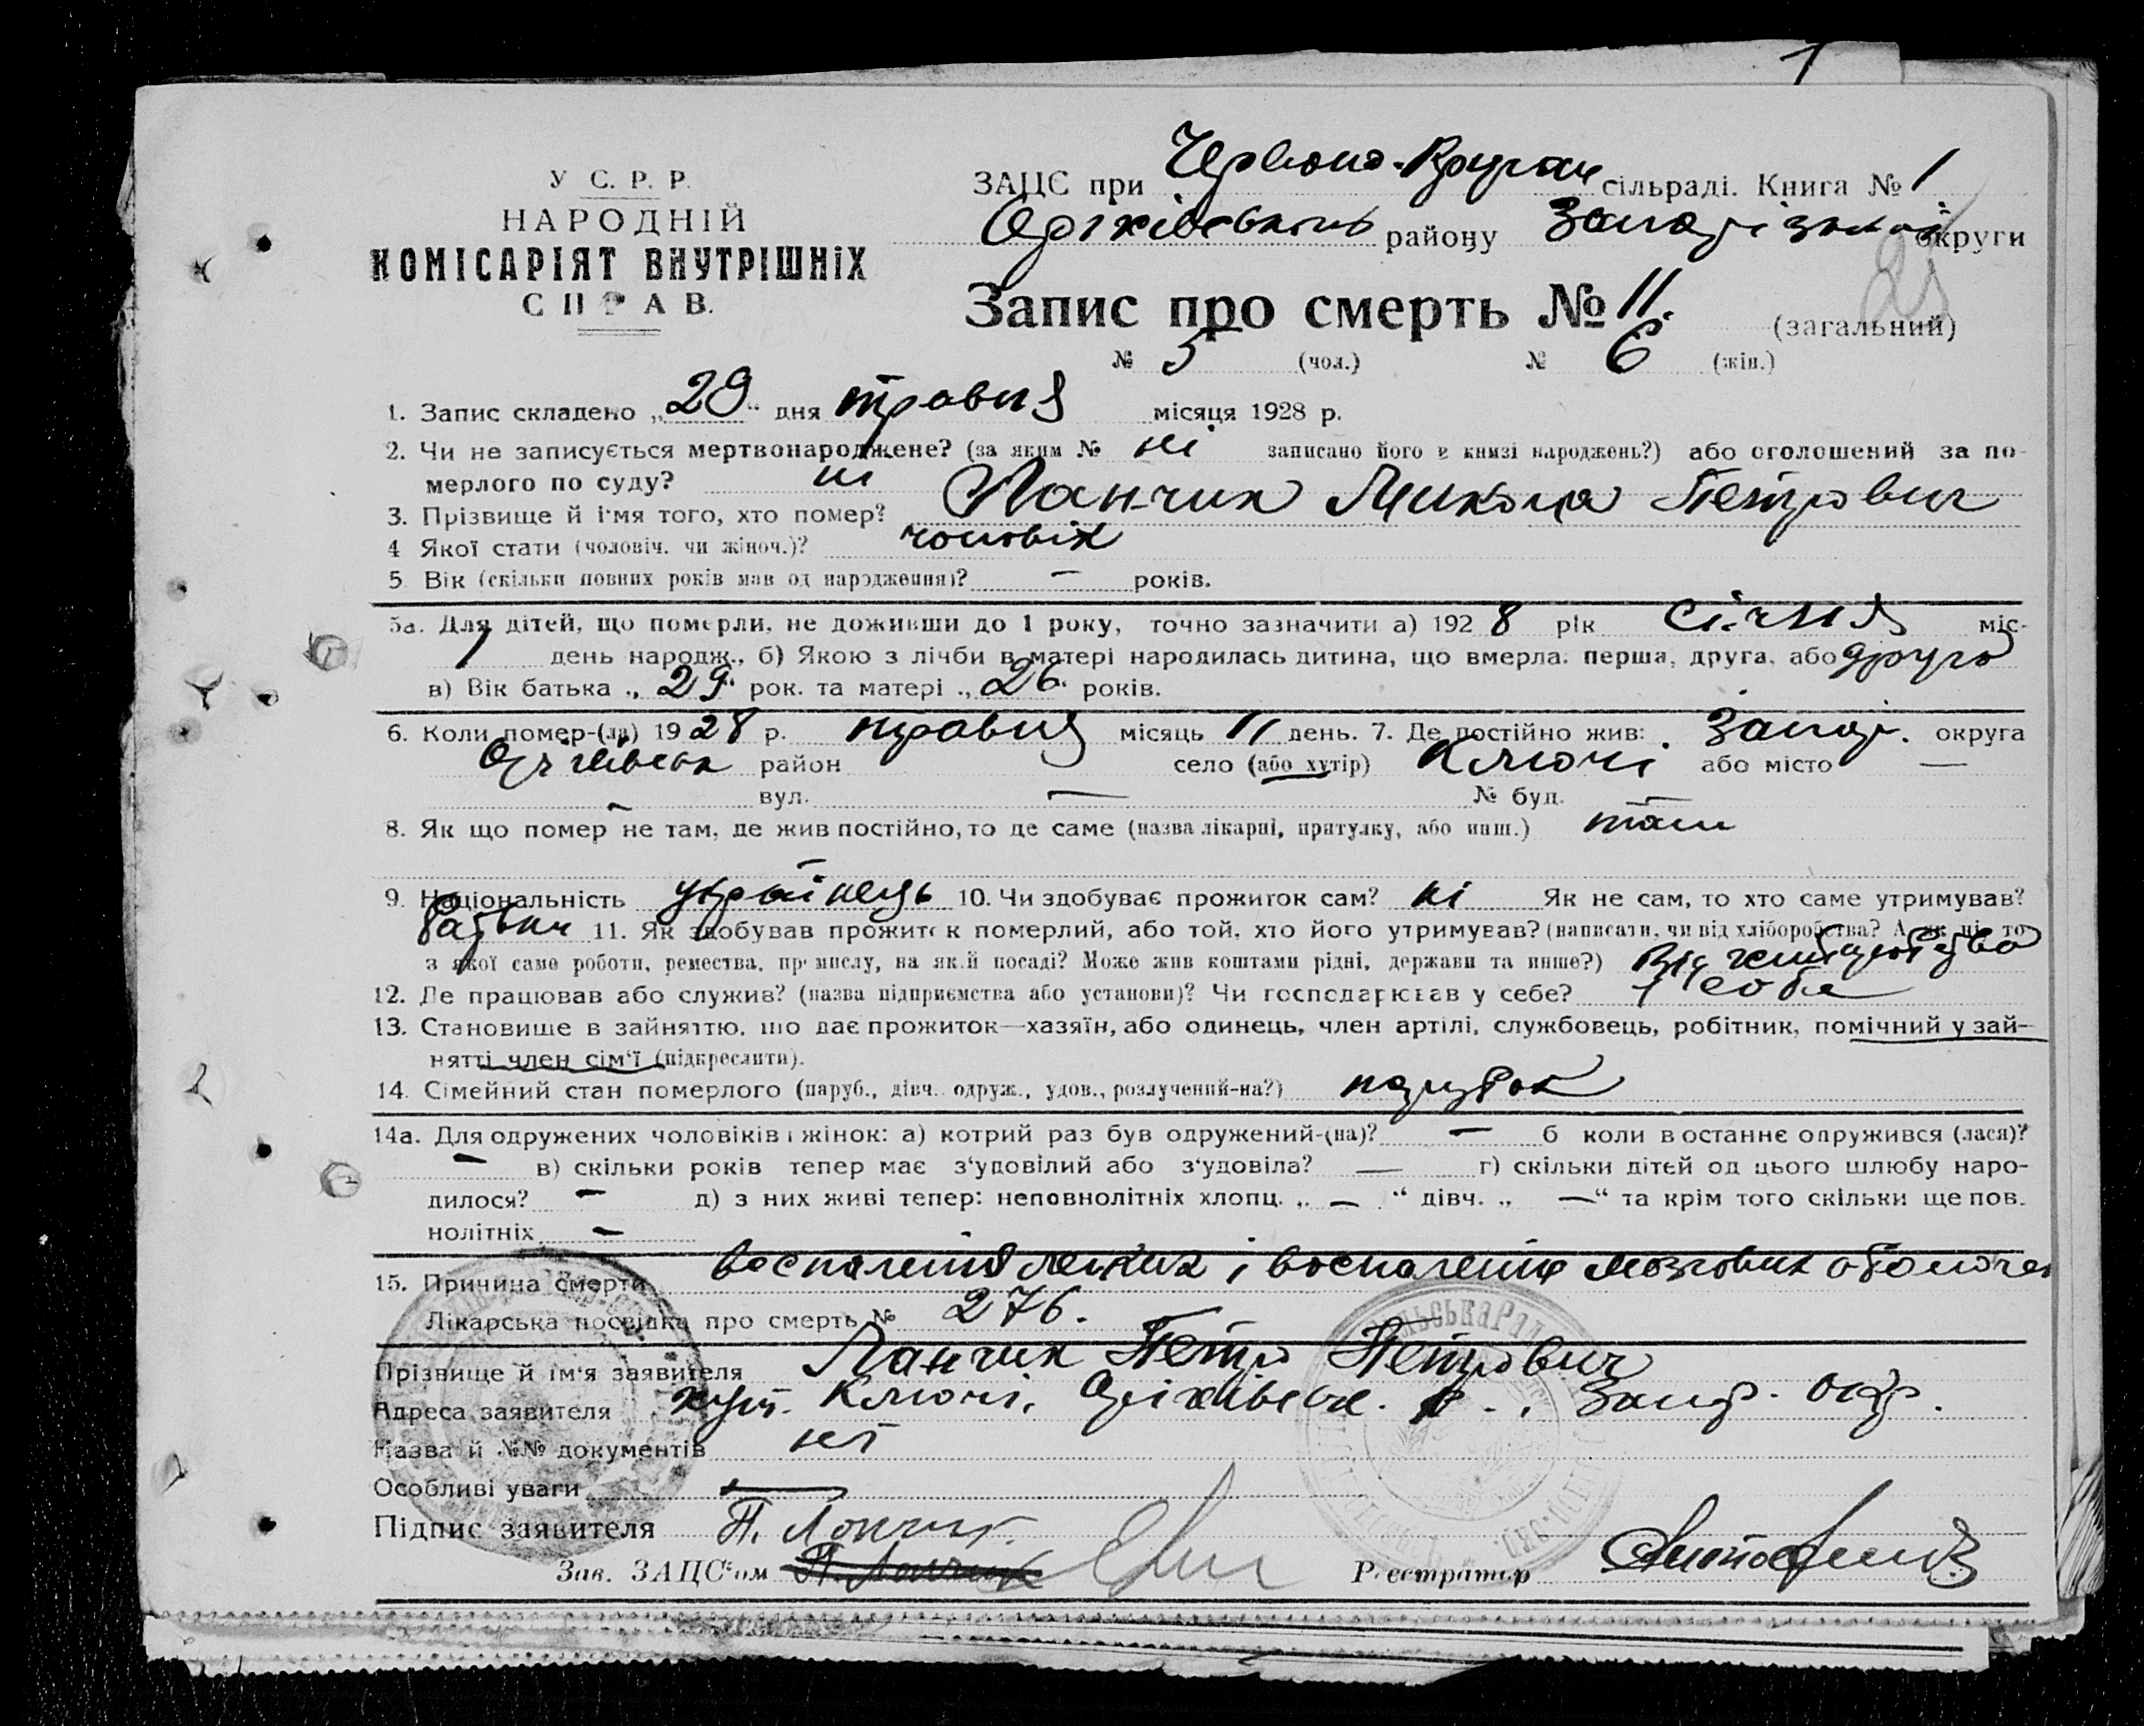 1
У С. Р. Р.
НАРОДНІЙ
КОМІСАРІЯТ ВНУТРІШНІХ
СПРАВ.
ЗАЦС при Червоно- сільраді. Книга № 1
Оріхівського району Запорізької округи
Запис про смерть № 11. (загальний)
№ 5 (чол.) № 6 (жін.)
1. Запис складено „29“ дня травня місяця 1928 р.
2. Чи не записується мертвонароджене? (за яким № ні записано його в книзі народжень?) або оголошений за по-
мерлого по суду? ні
3. Прізвище й ім'я того, хто помер? Ланчик Микола Петрович
4 Якої стати (чоловіч. чи жіноч.)? чоловік
5. Вік (скільки повних років мав од народження)? — років.
5а. Для дітей, що померли, не доживши до 1 року, точно зазначити а) 1928 рік січня міс-
1 день народж., б) Якою з лічби в матері народилась дитина, що вмерла: перша, друга, або друга
в) Вік батька „29“ рок. та матері „26“ років.
6. Коли помер-(ла) 1928 р. травня місяць 11 день. 7. Де постійно жив: Запор. округа
Оріхівськ район село (або хутір) Ключі або місто —
— вул. — № буд. —
8. Як що помер не там, де жив постійно, то де саме (назва лікарні, притулку, або инш.) там
9. Національність українець 10. Чи здобуває прожиток сам? ні Як не сам, то хто саме утримував?
батьки 11. Як здобував прожиток померлий, або той, хто його утримував? (написати, чи від хліборобства? А як ні, то
з якої саме роботи, ремества, промислу, на якій посаді? Може жив коштами рідні, держави та инше?) Від
12. Де працював або служив? (назва підприємства або установи)? Чи господарював у себе? у себе
13. Становище в зайняттю, що дає прожиток—хазяїн, або одинець, член артілі, службовець, робітник, помічний у зай-
нятті член сім'ї (підкреслити).
14. Сімейний стан померлого (паруб., дівч. одруж., удов., розлучений-на?) парубок
14а. Для одружених чоловіків і жінок: а) котрий раз був одружений-(на)? — б коли востаннє одружився (лася)?
— в) скільки років тепер має з'удовілий або з'удовіла? — г) скільки дітей од цього шлюбу наро-
дилося? — д) з них живі тепер: неповнолітніх хлопц. „ — “ дівч. „ —“ та крім того скільки ще пов.
нолітніх —
15. Причина смерти воспаления легких і воспаление мозгових оболочек
Лікарська посвідка про смерть № 276.
Прізвище й ім'я заявителя Ланчик Петро Петрович
Адреса заявителя хут. Ключі, Оріхівськ. р., Запор. окр.
Назва й №№ документів ні
Особливі уваги —
Підпис заявителя П. Ланчик.
Зав. ЗАЦС'ом П. Ланчик Реєстратор